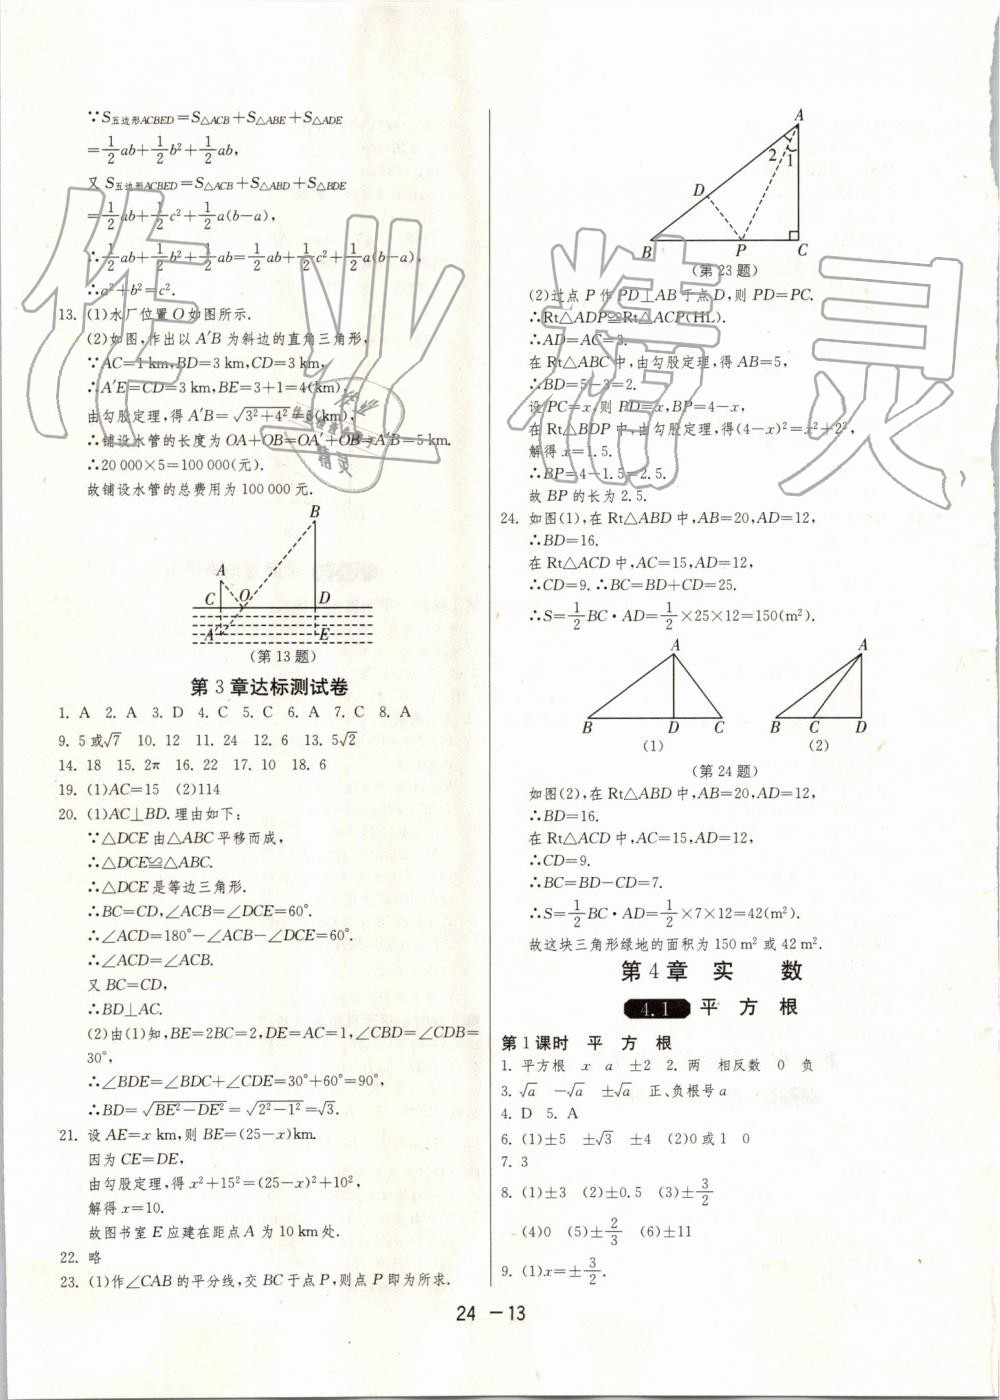 ∵S五边形ACBED=S△ACB+S△ABE+S△ADE
=1/2ab+1/2b²+1/2ab,
又 S五边形ACBED=S△ACB+S△ABD+S△BDE
=1/2ab+1/2c²+1/2a(b-a),
∴1/2ab+1/2b²+1/2ab=1/2ab+1/2c²+1/2a(b-a),
∴a²+b²=c².
13. (1)水厂位置 O 如图所示.
(2)如图,作出以 A′B 为斜边的直角三角形,
∵AC=1 km,BD=3 km,CD=3 km,
∴A′E=CD=3 km,BE=3+1=4(km),
由勾股定理,得 A′B=√(3²+4²)=5(km),
∴铺设水管的长度为 OA+OB=OA′+OB=A′B=5 km.
∴20 000×5=100 000(元).
故铺设水管的总费用为 100 000 元.
B
A
C O D
A′ E
(第 13 题)
第 3 章达标测试卷
1. A 2. A 3. D 4. C 5. C 6. A 7. C 8. A
9. 5 或√7 10. 12 11. 24 12. 6 13. 5√2
14. 18 15. 2π 16. 22 17. 10 18. 6
19. (1)AC=15 (2)114
20. (1)AC⊥BD.理由如下:
∵△DCE 由△ABC 平移而成,
∴△DCE≌△ABC.
∴△DCE 是等边三角形.
∴BC=CD,∠ACB=∠DCE=60°.
∴∠ACD=180°-∠ACB-∠DCE=60°.
∴∠ACD=∠ACB.
又 BC=CD,
∴BD⊥AC.
(2)由(1)知,BE=2BC=2,DE=AC=1,∠CBD=∠CDB=
30°,
∴∠BDE=∠BDC+∠CDE=30°+60°=90°,
∴BD=√(BE²-DE²)=√(2²-1²)=√3.
21. 设 AE=x km,则 BE=(25-x)km.
因为 CE=DE,
由勾股定理,得 x²+15²=(25-x)²+10²,
解得 x=10.
故图书室 E 应建在距点 A 为 10 km 处.
22. 略
23. (1)作∠CAB 的平分线,交 BC 于点 P,则点 P 即为所求.
A
2 1
D
B P C
(第 23 题)
(2)过点 P 作 PD⊥AB 于点 D,则 PD=PC.
∴Rt△ADP≌Rt△ACP(HL).
∴AD=AC=3.
在 Rt△ABC 中,由勾股定理,得 AB=5,
∴BD=5-3=2.
设 PC=x,则 PD=x,BP=4-x,
在 Rt△BDP 中,由勾股定理,得(4-x)²=x²+2²,
解得 x=1.5.
∴BP=4-1.5=2.5.
故 BP 的长为 2.5.
24. 如图(1),在 Rt△ABD 中,AB=20,AD=12,
∴BD=16.
在 Rt△ACD 中,AC=15,AD=12,
∴CD=9.∴BC=BD+CD=25.
∴S=1/2BC·AD=1/2×25×12=150(m²).
A A
B D C B C D
(1) (2)
(第 24 题)
如图(2),在 Rt△ABD 中,AB=20,AD=12,
∴BD=16.
在 Rt△ACD 中,AC=15,AD=12,
∴CD=9.
∴BC=BD-CD=7.
∴S=1/2BC·AD=1/2×7×12=42(m²).
故这块三角形绿地的面积为 150 m² 或 42 m².
第 4 章 实 数
4.1 平 方 根
第 1 课时 平 方 根
1. 平方根 x a ±2 2. 两 相反数 0 负
3. √a -√a ±√a 正、负根号 a
4. D 5. A
6. (1)±5 ±√3 ±4 (2)0 或 1 0
7. 3
8. (1)±3 (2)±0.5 (3)±3/2
(4)0 (5)±2/3 (6)±11
9. (1)x=±3/2.
24 -13
作业精灵
作业
精灵